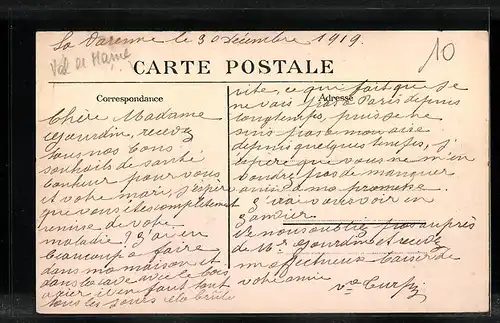 La Varenne le 30 décembre 1919.
Val de Marne
10
CARTE POSTALE
Correspondance
Adresse
Chère Madame
Jourdin, recevez
tous nos bons
souhaits de santé
bonheur pour vous
et votre mari, j'espère
que vous êtes complètement
remise de votre
maladie? j'ai eu
beaucoup à faire
dans ma maison et
dans la cave avec le bois
à scier il en faut tant
tous les jours et ça brûle
vite, ce qui fait que je
ne vais pas à Paris depuis
longtemps, puis je ne
suis pas à mon aise
depuis quelques temps, j'
espère que vous ne m'en
voudrez pas de manquer
ainsi à ma promesse.
j'irai vous voir en
janvier.
Ne nous oubliez pas auprès
de Mr Jourdin et recevez
un affectueux baiser de
votre amie
Vve